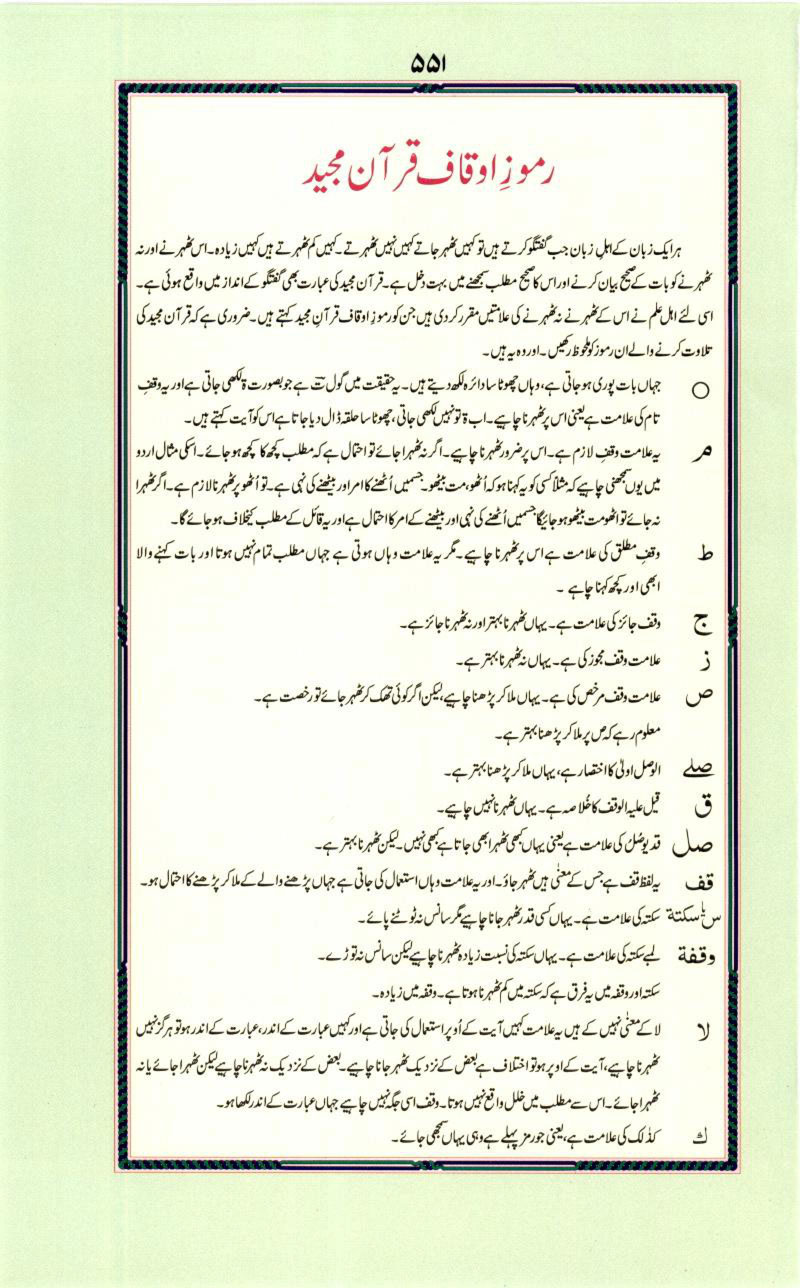 ۵۵۱
رموزِ اوقاف قرآن مجید
ہر ایک زبان کے اہلِ زبان جب گفتگو کرتے ہیں تو کہیں ٹھہر جاتے کہیں نہیں ٹھہرتے۔ کہیں کم ٹھہرتے ہیں کہیں زیادہ۔ اس ٹھہرنے اور نہ
ٹھہرنے کو بات کے صحیح بیان کرنے اور اس کا صحیح مطلب سمجھنے میں بہت دخل ہے۔ قرآن مجید کی عبارت بھی گفتگو کے انداز میں واقع ہوئی ہے۔
اسی لئے اہل علم نے اس کے ٹھہرنے نہ ٹھہرنے کی علامتیں مقرر کر دی ہیں جن کو رموزِ اوقاف قرآنِ مجید کہتے ہیں۔ ضروری ہے کہ قرآن مجید کی
تلاوت کرنے والے ان رموز کو ملحوظ رکھیں۔ اور وہ یہ ہیں۔
○ جہاں بات پوری ہو جاتی ہے، وہاں چھوٹا سا دائرہ لکھ دیتے ہیں۔ یہ حقیقت میں گول تؔ ہے جو بصورت ۃ لکھی جاتی ہے اور یہ وقفِ
تام کی علامت ہے یعنی اس پر ٹھہرنا چاہیے۔ اب ۃ تو نہیں لکھی جاتی، چھوٹا سا حلقہ ڈال دیا جاتا ہے اس کو آیت کہتے ہیں۔
م یہ علامت وقفِ لازم ہے۔ اس پر ضرور ٹھہرنا چاہیے۔ اگر نہ ٹھہرا جائے تو احتمال ہے کہ مطلب کچھ کا کچھ ہو جائے۔ اسکی مثال اردو
میں یوں سمجھنی چاہیے کہ مثلاً کسی کو یہ کہنا ہو کہ اُٹھو، مت بیٹھو۔ جسمیں اُٹھنے کا امر اور بیٹھنے کی نہی ہے۔ تو اُٹھو پر ٹھہرنا لازم ہے۔ اگر ٹھہرا
نہ جائے تو اٹھو مت بیٹھو ہو جائیگا جسمیں اُٹھنے کی نہی اور بیٹھنے کے امر کا احتمال ہے اور یہ قائل کے مطلب کیخلاف ہو جائے گا۔
ط وقفِ مطلق کی علامت ہے اس پر ٹھہرنا چاہیے۔ مگر یہ علامت وہاں ہوتی ہے جہاں مطلب تمام نہیں ہوتا اور بات کہنے والا
ابھی اور کچھ کہنا چاہے۔
ج وقف جائز کی علامت ہے۔ یہاں ٹھہرنا بہتر اور نہ ٹھہرنا جائز ہے۔
ز علامت وقف مجوز کی ہے۔ یہاں نہ ٹھہرنا بہتر ہے۔
ص علامت وقف مرخص کی ہے۔ یہاں ملا کر پڑھنا چاہیے، لیکن اگر کوئی تھک کر ٹھہر جائے تو رخصت ہے۔
معلوم رہے کہ ص پر ملا کر پڑھنا بہتر ہے۔
صلے الوصل اولیٰ کا اختصار ہے، یہاں ملا کر پڑھنا بہتر ہے۔
ق قیل علیہ الوقف کا خُلاصہ ہے۔ یہاں ٹھہرنا نہیں چاہیے۔
صل قد یوصَلُ کی علامت ہے یعنی یہاں کبھی ٹھہرا بھی جاتا ہے کبھی نہیں۔ لیکن ٹھہرنا بہتر ہے۔
قف یہ لفظ قف ہے جس کے معنٰی ہیں ٹھہر جاؤ۔ اور یہ علامت وہاں استعمال کی جاتی ہے جہاں پڑھنے والے کے ملا کر پڑھنے کا احتمال ہو۔
س یا سکتة سکتہ کی علامت ہے۔ یہاں کسی قدر ٹھہر جانا چاہیے مگر سانس نہ ٹوٹنے پائے۔
وقفة لمبے سکتہ کی علامت ہے۔ یہاں سکتہ کی نسبت زیادہ ٹھہرنا چاہیے لیکن سانس نہ توڑے۔
سکتہ اور وقفہ میں یہ فرق ہے کہ سکتہ میں کم ٹھہرنا ہوتا ہے۔ وقفہ میں زیادہ۔
لا لا کے معنٰی نہیں کے ہیں یہ علامت کہیں آیت کے اُوپر استعمال کی جاتی ہے اور کہیں عبارت کے اندر، عبارت کے اندر ہو تو ہرگز نہیں
ٹھہرنا چاہیے، آیت کے اوپر ہو تو اختلاف ہے بعض کے نزدیک ٹھہر جانا چاہیے۔ بعض کے نزدیک نہ ٹھہرنا چاہیے لیکن ٹھہرا جائے یا نہ
ٹھہرا جائے۔ اس سے مطلب میں خلل واقع نہیں ہوتا۔ وقف اسی جگہ نہیں چاہیے جہاں عبارت کے اندر لکھا ہو۔
ك کذٰلک کی علامت ہے، یعنی جو رمز پہلے ہے وہی یہاں سمجھی جائے۔